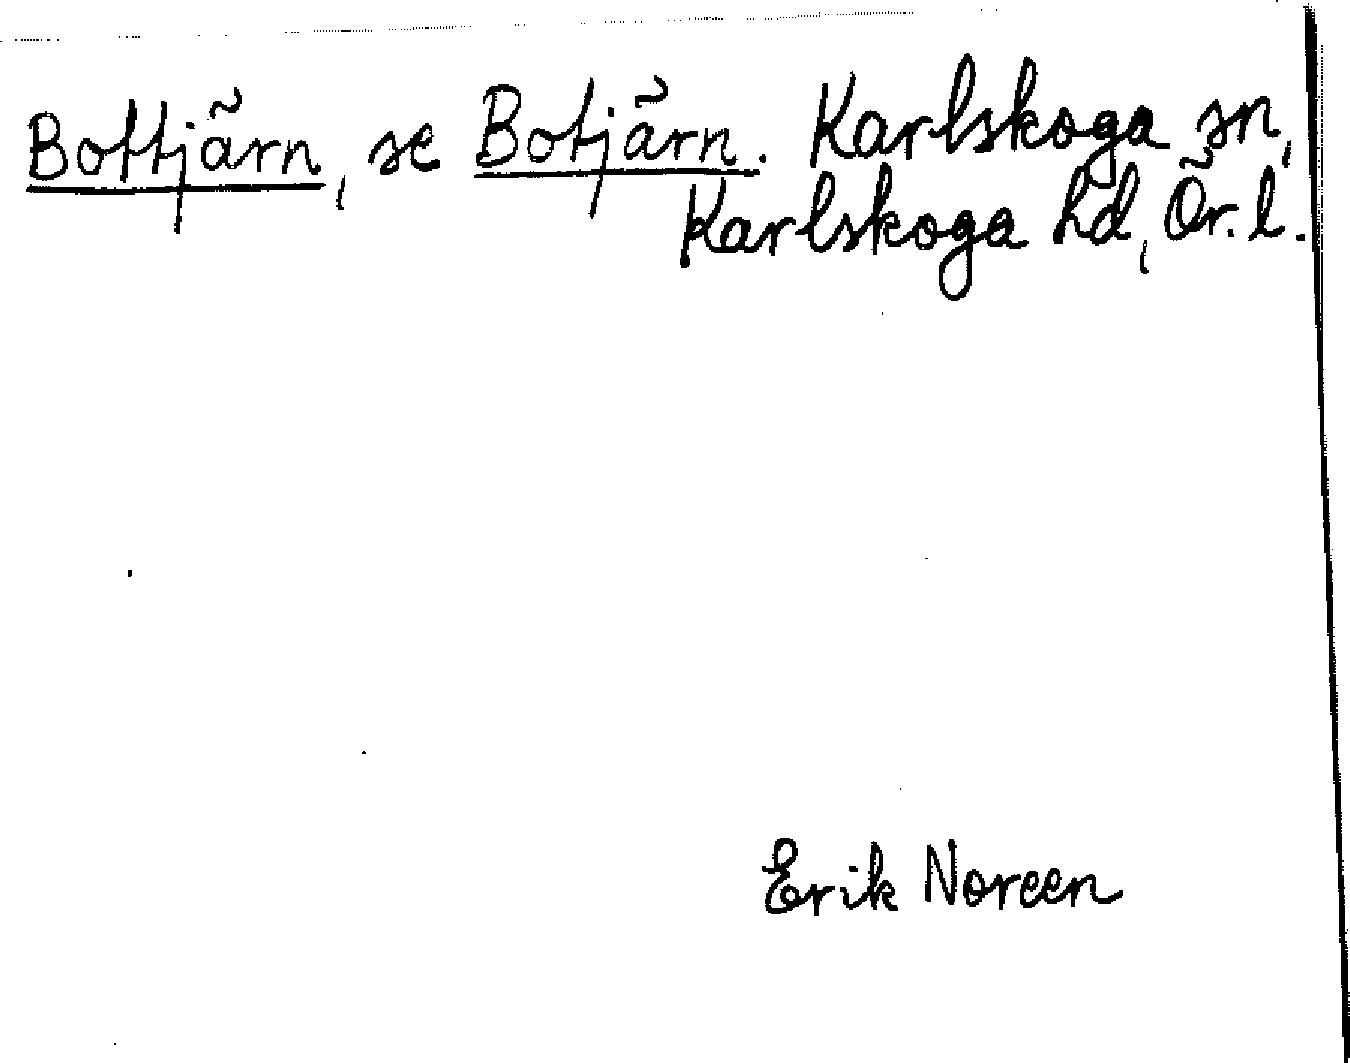 Bottjärn, se Botjärn. Karlskoga sn,
Karlskoga hd, Ör. l.
Erik Noreen